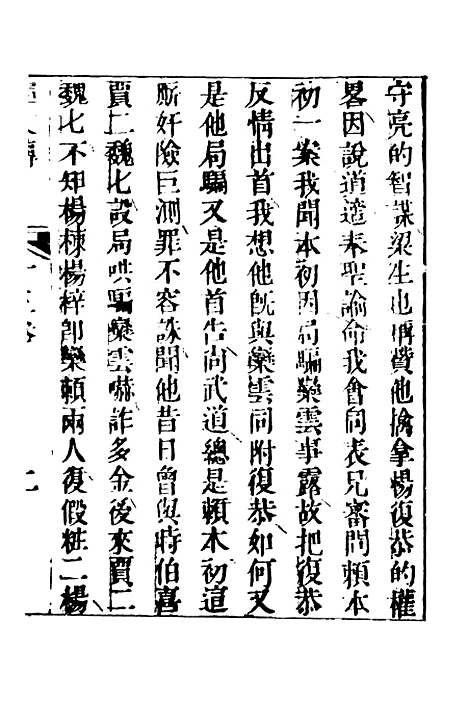 守亮的智謀梁生也稱贊他擒拿楊復恭的權
畧因說道遵奉聖諭命我會同表兄審問賴本
初一案我聞本初因局騙欒雲事露故把復恭
反情出首我想他旣與欒雲同附復恭如何又
是他局騙又是他首告尚武道總是賴本初這
厮奸險巨測罪不容誅聞他昔日曾與時伯喜
賈二魏七設局哄騙欒雲嚇詐多金後來賈二
魏七不知楊棟楊梓卽欒賴兩人復假粧二楊